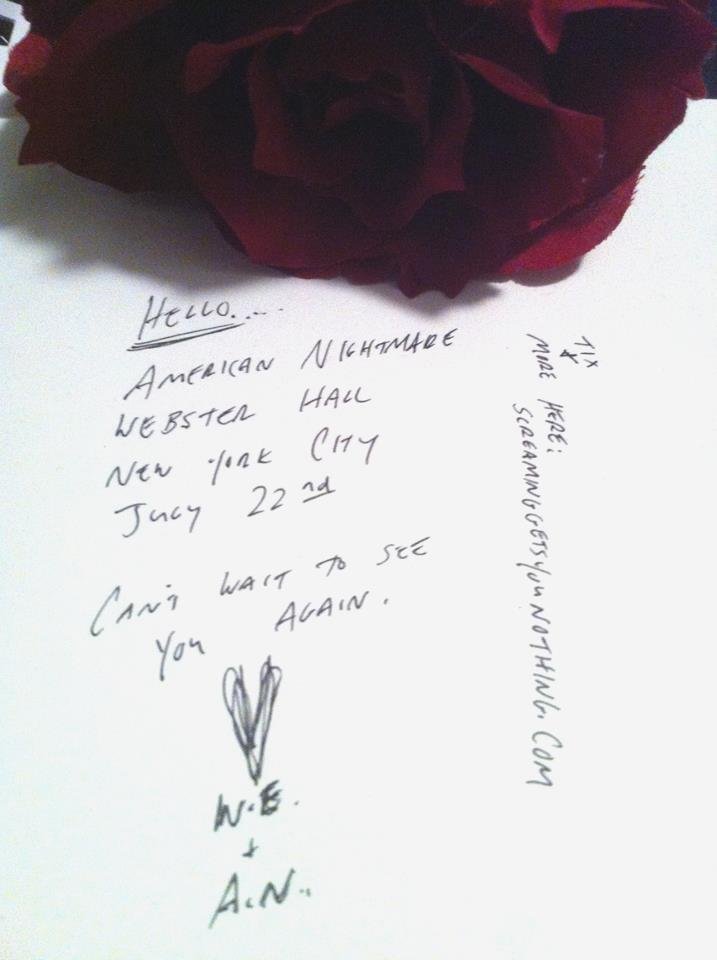 HELLO.....
AMERICAN NIGHTMARE
WEBSTER HALL
NEW YORK CITY
JULY 22nd
CAN'T WAIT TO SEE
YOU AGAIN.
W.E.
+
A.N..
TIX
+
MORE HERE:
SCREAMINGGETSYOUNOTHING.COM